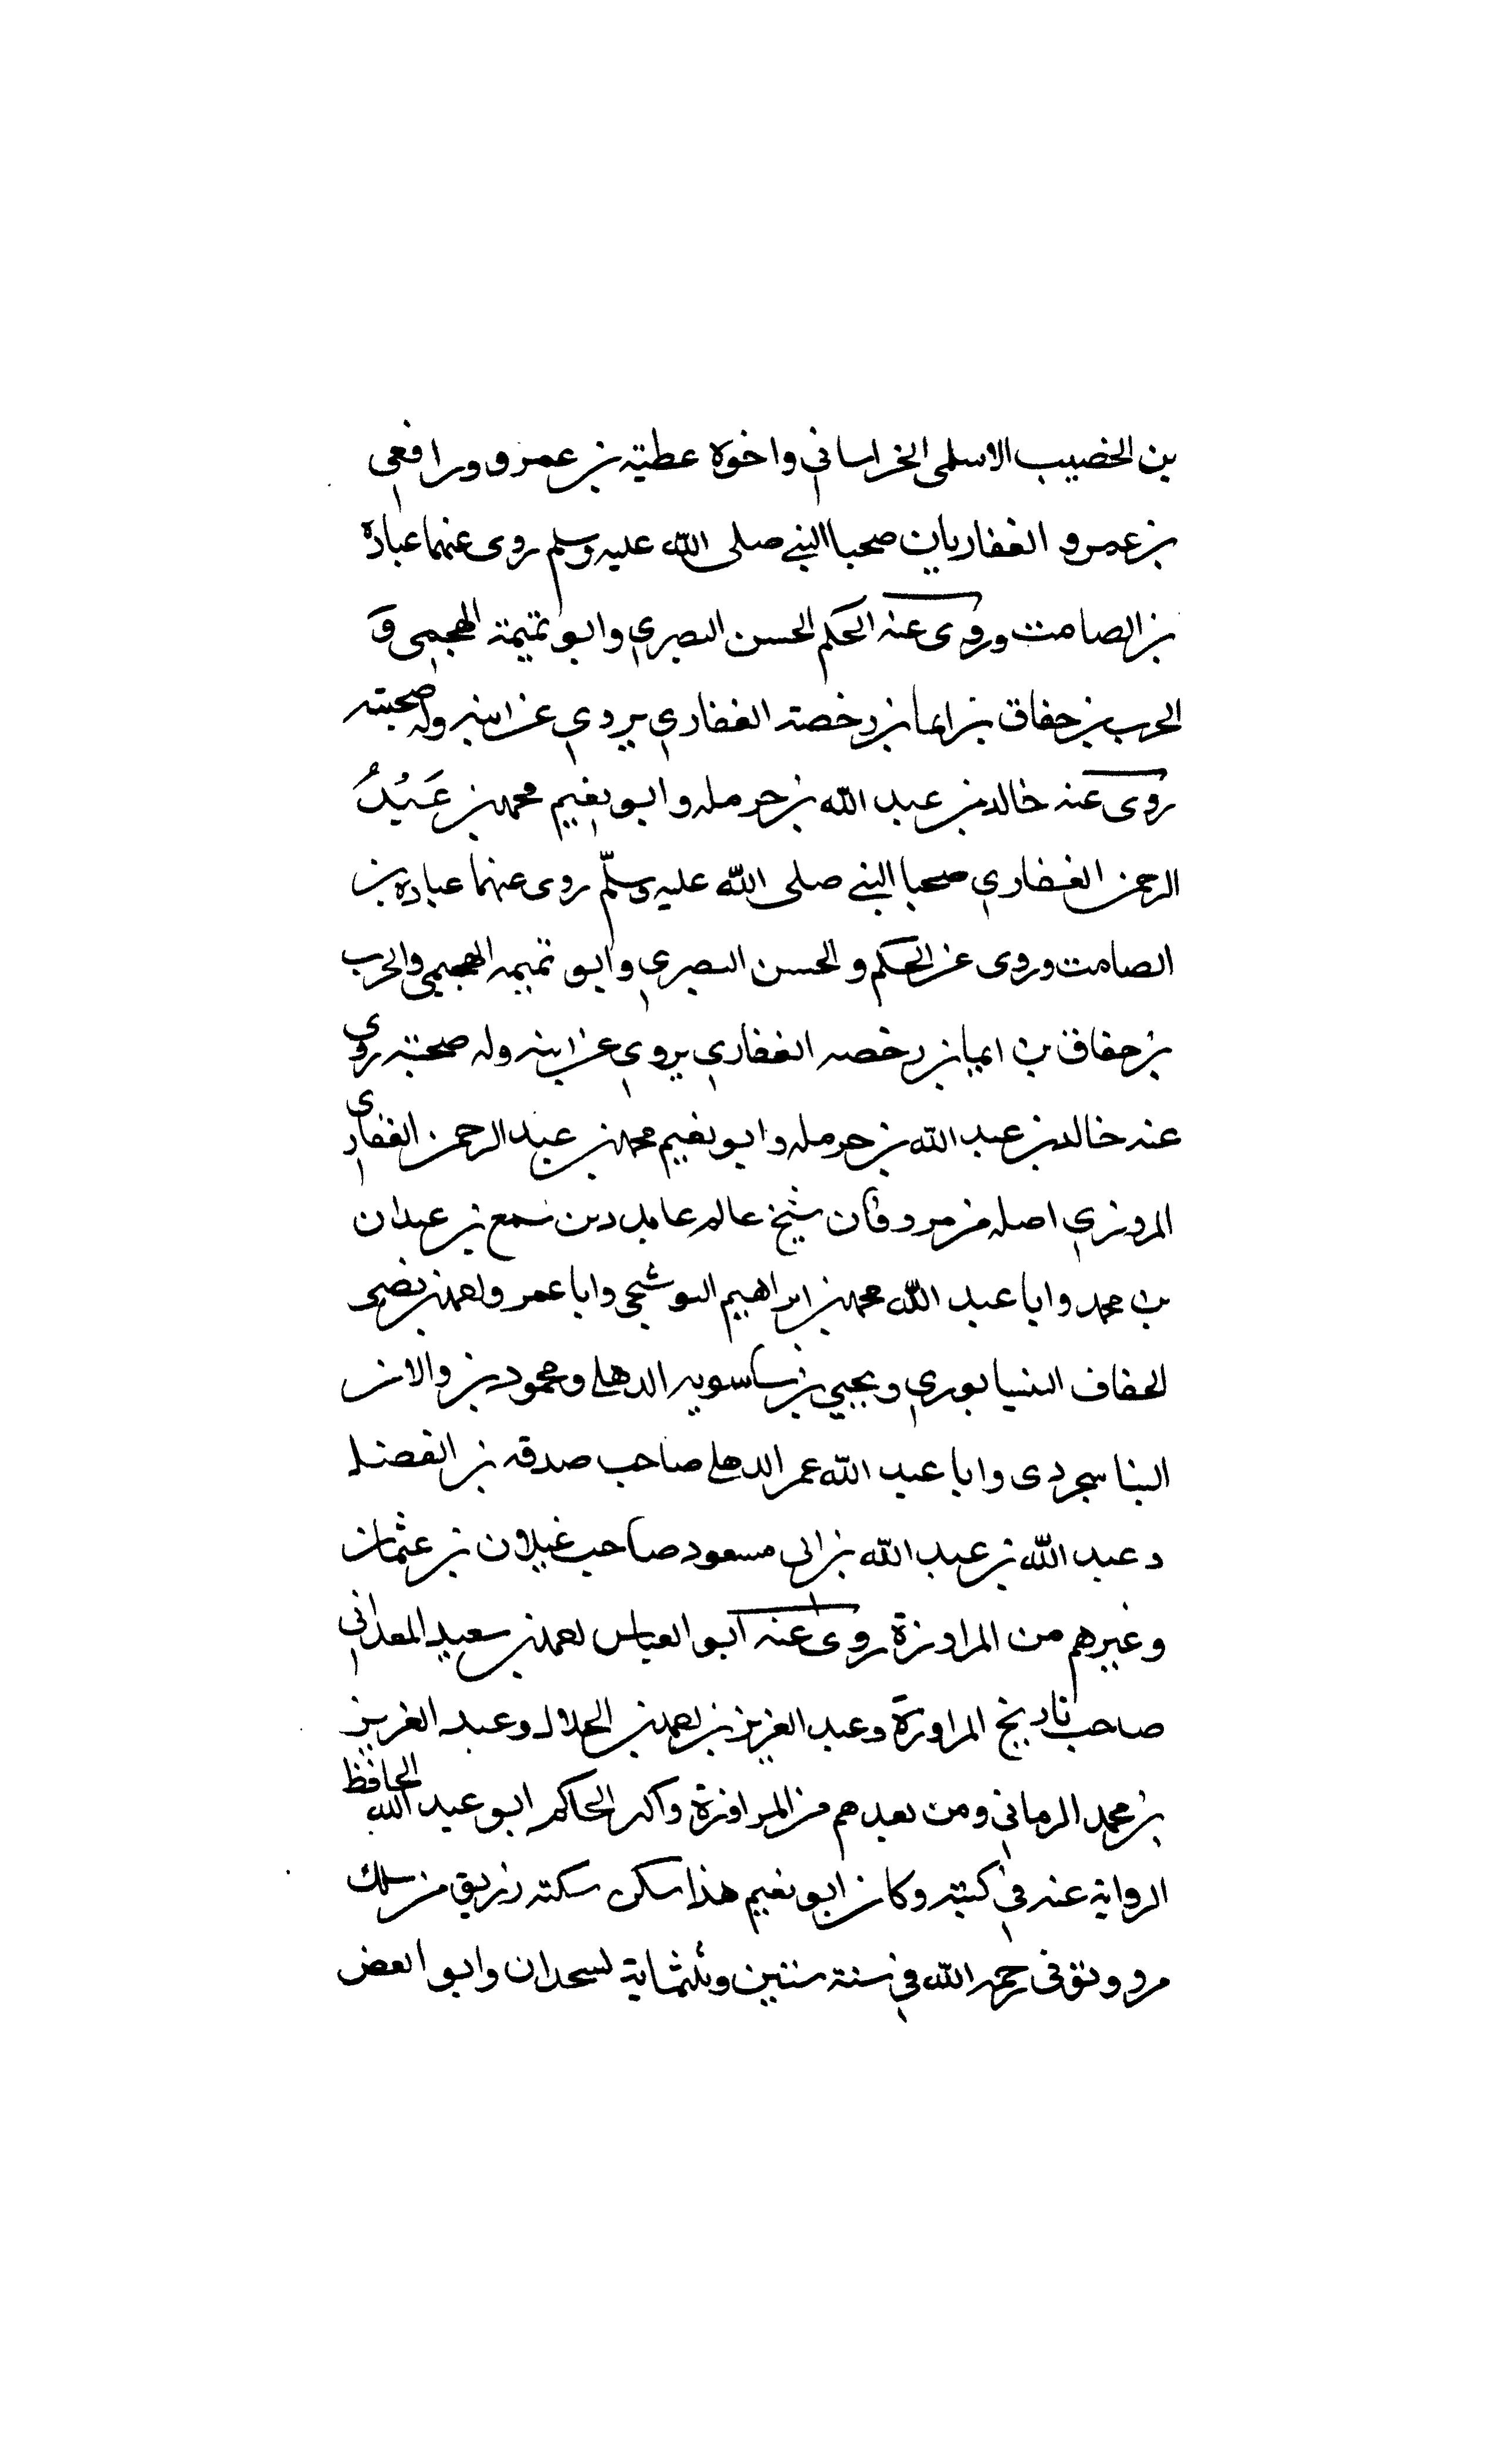 بن الخصيب الاسلمى الخراساني واخوه عطية بن عمرو ورافعي
بن عمرو الغفاريان صحبا النبي صلى الله عليه وسلم روى عنهما عبادة
بن الصامت وروى عنه الحكم الحسن البصري وابو تميمة الهجيمى و
الحرب بن خفاق بن ايما بن رخصة الغفاري يروي عن ابيه وله صحبته
روى عنه خالد بن عبد الله بن حرمله وابو نعيم محمد بن عبد
الرحمن الغفاري صحبا النبي صلى الله عليه وسلّم روى عنهما عباده بن
الصامت وروى عن الحكم والحسن البصري وابو تميمه الهجيمي والحرب
بن خفاق بن ايما بن رخصه الغفاري يروي عن ابيه وله صحبته روى
عنه خالد بن عبد الله بن حرمله وابو نعيم محمد بن عبد الرحمن الغفاري
المروزي اصله من مرو فان شيخ عالم عامل دين سمع بن عبدان
بن محمد وابا عبد الله محمد بن ابراهيم البوشنجى وابا عمرو احمد بن نصر
الخفاف النيسابوري ويحيي بن ساسويه الدهلى ومحمود بن والان
البناسجردى وابا عبد الله عمر الدهلى صاحب صدقه بن الفضل
وعبد الله بن عبد الله بن ابى مسعود صاحب غيلان بن عثمان
وغيرهم من المراوزة روى عنه ابو العباس احمد بن سعيد المعداني
صاحب تاريخ المراوزة وعبد العزيز بن احمد بن الحلال وعبد العزيز
بن محمد الرماني ومن بعدهم من المراوزة واكثر الحاكم ابو عبد الله الحافظ
الرواية عنه في كتبه وكان ابو نعيم هذا سكن سكته رزيق من سلك
مرو وتوفى رحمه الله في سنة ستين وثلثماية لسحدان وابو العض